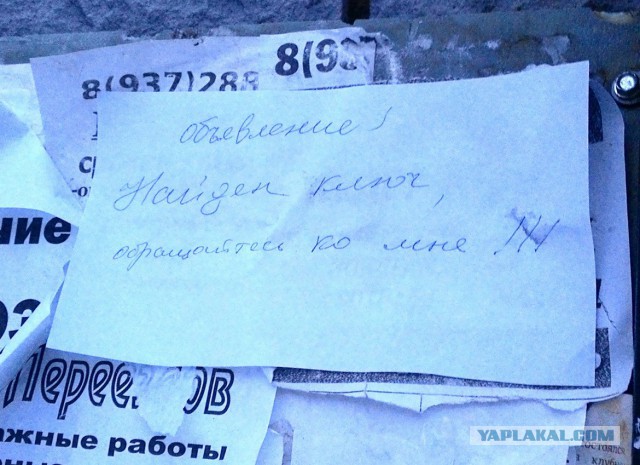 8(937)288
8(93
объевление!
Найден ключ,
обращайтесь ко мне !!!
ние
Перее
ов
ажные работы
YAPLAKAL.COM